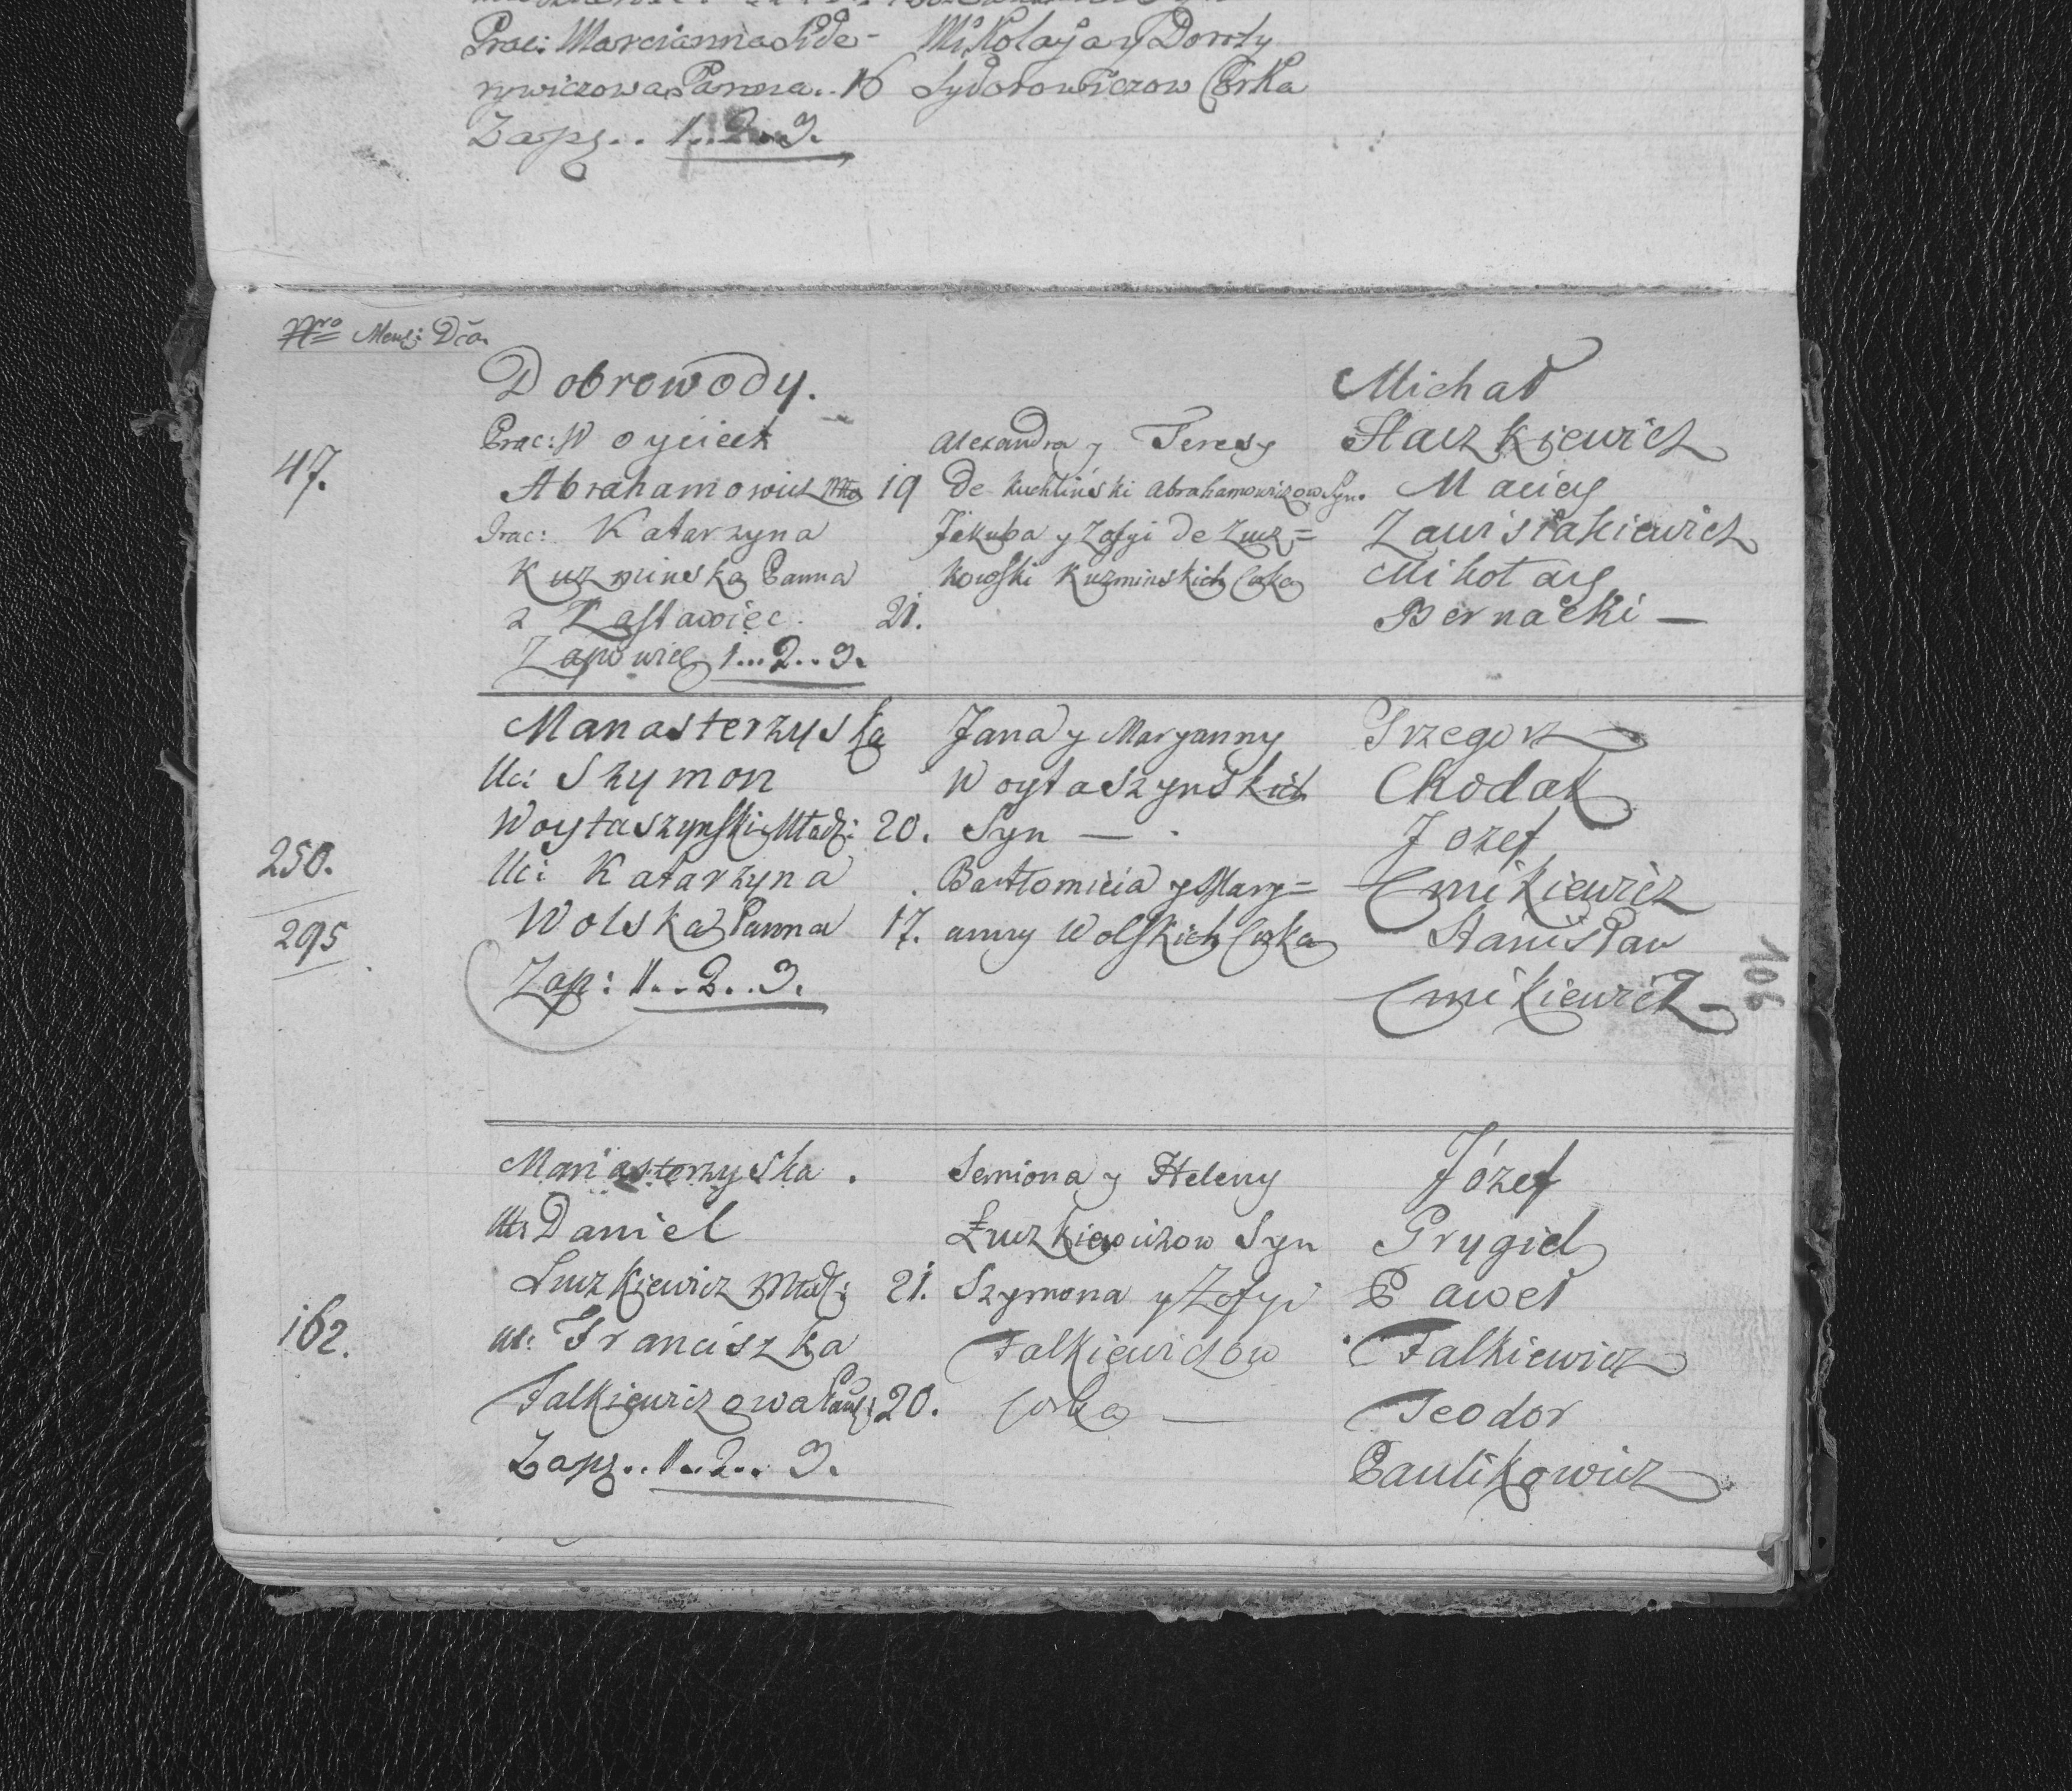 Prac: Marcianna Side-
rywiczowa Panna.. 16
Zapg.. 1..2..3.
Mikołaja y Doroty
Sydorowiczow Corka
Nro Mens: Dia
47.
Dobrowody.
Prac: Woyciech
Abrahamowicz Mło 19
Prac: Katarzyna
Kuzminska Panna
z Zastawiec. 21.
Zapowieg 1...2..3.
Alexandra y Teresy
De Kuchliński Abrahamowiczow Syn.
Jakuba y Zofyi de Łucz=
kowski Kuzminskich Corka
Michał
Staszkiewicz
Maciey
Zawislakiewicz
Mikołay
Bernacki —
250.
295
Manasterzyska
Uci Szymon
Woytaszynski Młodz: 20.
Uci Katarzyna
Wolska Panna 17.
Zap: 1..2..3.
Jana y Maryanny
Woytaszynskich
Syn —
Bartłomieia y Mary=
anny Wolskich Corka
Grzegorz
Chodak
Jozef
Cmikiewicz
Stanisław
Cmikiewicz
106
162.
Manasterzyska.
Daniel
Łuczkiewicz Młodz: 21.
Franciszka
Falkiewiczowa Pan: 20.
Zapg..1..2..3.
Semiona y Heleny
Łuczkiewiczow Syn
Szymona y Zofyi
Falkiewiczow
Corka —
Józef
Grygiel
Paweł
Falkiewicz
Teodor
Paulikowicz